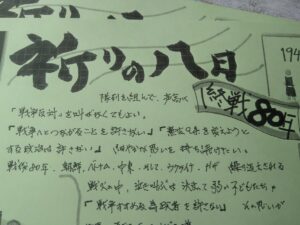 祈りの八月
194
終戦80年
腕を組んで、声高に
「戦争反対」を叫ばなくてもよい。
「戦争へとつながることを許さない」「憲法9条を変えようと
する政治は許さない」 細やかな思いを持ち続けたい。
戦後80年、朝鮮、ベトナム、中東、そして、ウクライナ、ガザ 繰り返される
戦火の中、逃げ
弱い子どもたち。
「戦争すすめる為政者を許さない」 その思いが